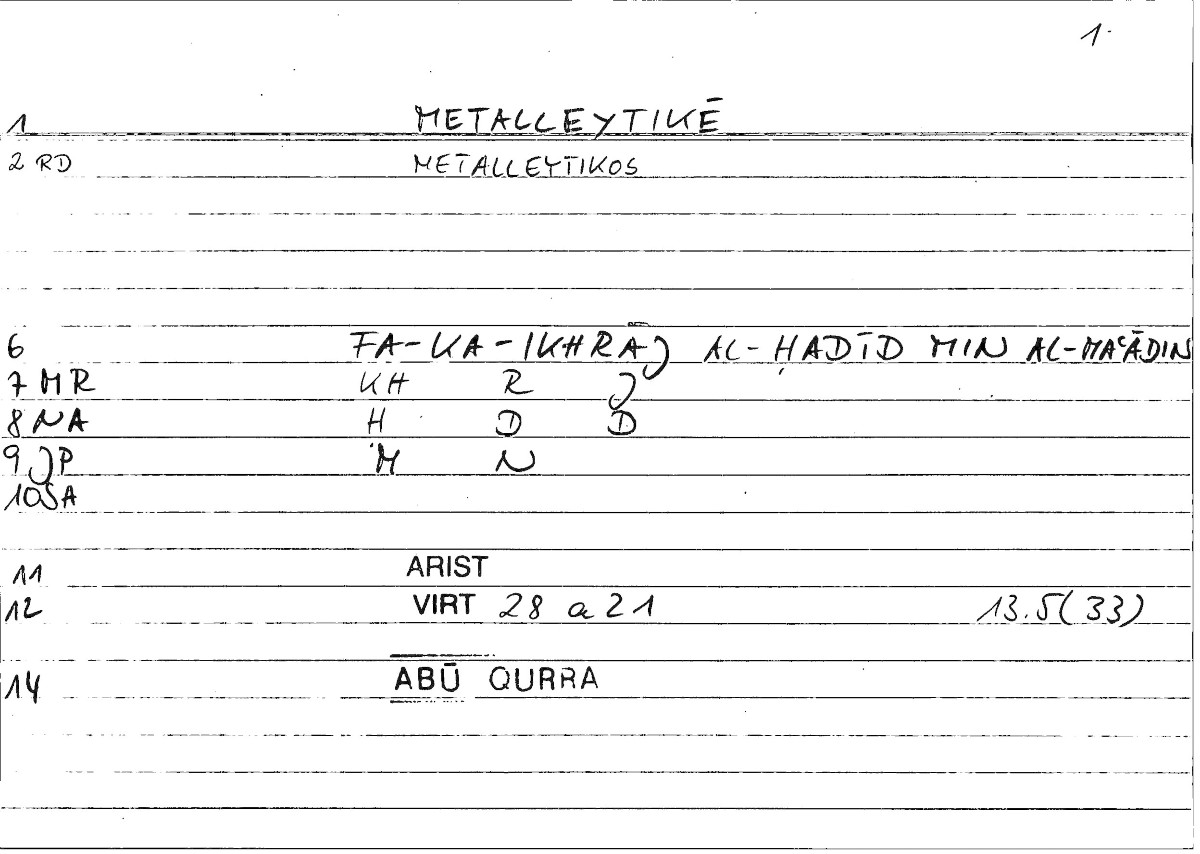 1.
1 METALLEYTIKĒ
2 RD METALLEYTIKOS
6 FA-KA-IKHRĀJ AL-ḤADĪD MIN AL-MAʿĀDIN
7 MR KH R J
8 NA H D D
9 JP M N
10 SA
11 ARIST
12 VIRT 28 a 21 13.5(33)
14 ABŪ QURRA